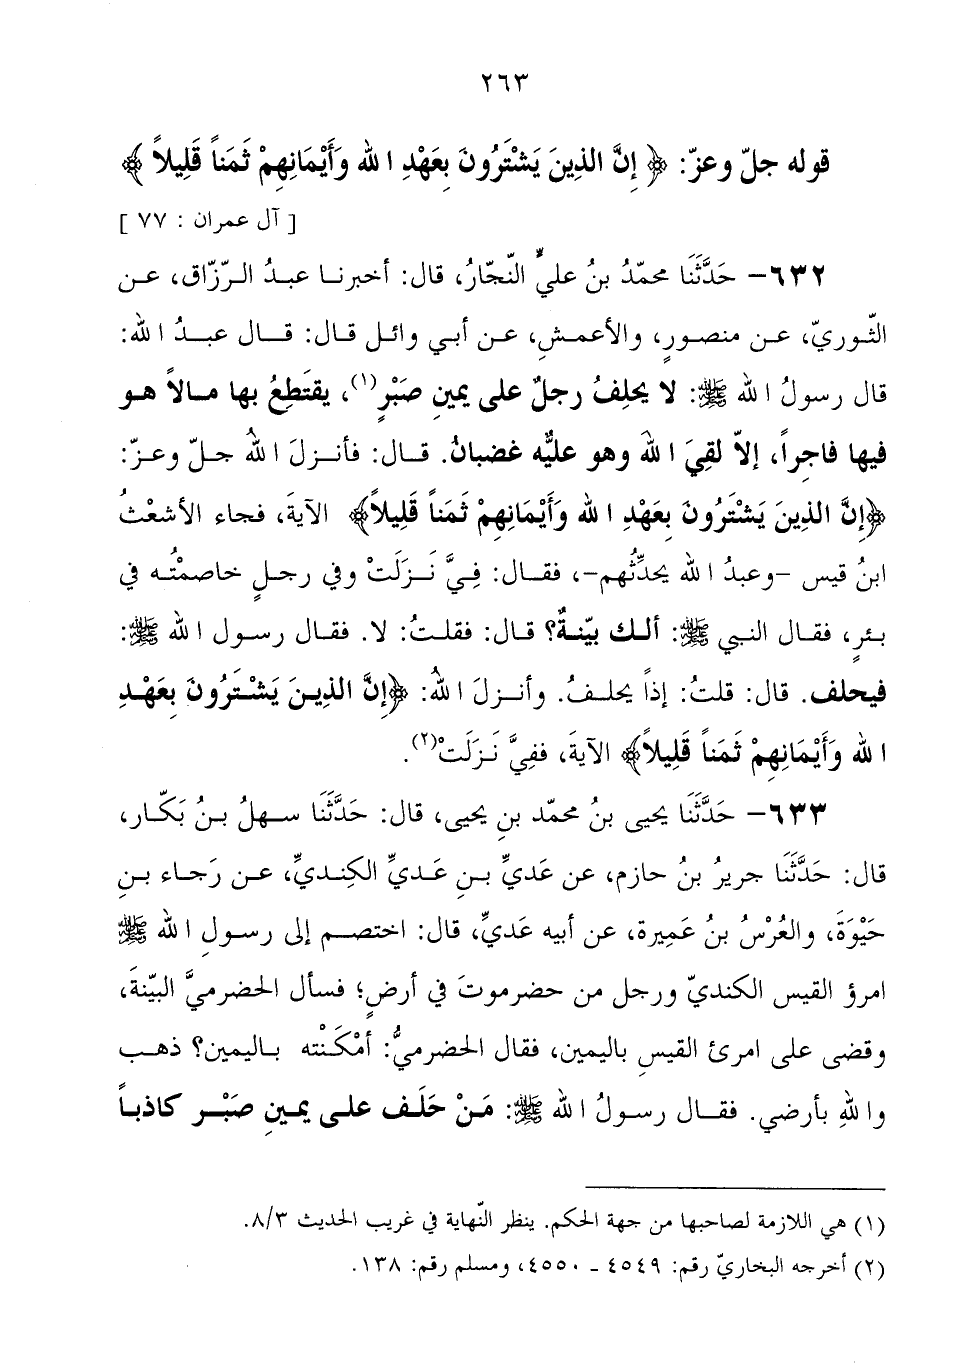 ٢٦٣
قوله جلّ وعزّ: ﴿ إِنَّ الذِينَ يَشْتَرُونَ بِعَهْدِ الله وَأَيْمَانِهِمْ ثَمَناً قَلِيلاً ﴾
[ آل عمران : ٧٧ ]
٦٣٢– حَدَّثَنَا محمّدُ بنُ عليٍّ النّجّارُ، قال: أخبرنا عبدُ الرّزّاق، عن
الثّوريّ، عن منصورٍ، والأعمشِ، عن أبي وائل قال: قال عبدُ الله:
قال رسولُ الله ﷺ: لا يحلِفُ رجلٌ على يمينِ صَبْرٍ(١)، يقتَطِعُ بها مالاً هو
فيها فاجراً، إلاّ لقِيَ اللهَ وهو عليْه غضبانُ. قال: فأنزلَ اللهُ جلّ وعزّ:
﴿إِنَّ الذِينَ يَشْتَرُونَ بِعَهْدِ الله وَأَيْمَانِهِمْ ثَمَناً قَلِيلاً﴾ الآيةَ، فجاء الأشعْثُ
ابنُ قيس –وعبدُ الله يحدِّثُهم–، فقال: فِيَّ نَزَلَتْ وفي رجلٍ خاصمْتُه في
بئرٍ، فقال النبي ﷺ: ألك بيّنةٌ؟ قال: فقلتُ: لا. فقال رسول الله ﷺ:
فيحلف. قال: قلتُ: إذاً يحلفُ. وأنزلَ اللهُ: ﴿إِنَّ الذِينَ يَشْتَرُونَ بِعَهْدِ
الله وَأَيْمَانِهِمْ ثَمَناً قَلِيلاً﴾ الآيةَ، ففِيَّ نَزَلَتْ(٢).
٦٣٣– حَدَّثَنَا يحيى بنُ محمّد بنِ يحيى، قال: حَدَّثَنَا سهلُ بنُ بَكّار،
قال: حَدَّثَنَا جريرُ بنُ حازم، عن عَديِّ بنِ عَديِّ الكِنديِّ، عن رَجاء بنِ
حَيْوَةَ، والعُرْسُ بنُ عَمِيرة، عن أبيه عَديٍّ، قال: اختصم إلى رسولِ الله ﷺ
امرؤ القيس الكنديّ ورجل من حضرموتَ في أرضٍ؛ فسأل الحضرميَّ البيّنةَ،
وقضى على امرئ القيسِ باليمين، فقال الحضرميُّ: أمْكَنْته باليمين؟ ذهب
واللهِ بأرضي. فقال رسولُ الله ﷺ: مَنْ حَلَف على يمينِ صَبْرٍ كاذباً
(١) هي اللازمة لصاحبها من جهة الحكم. ينظر النّهاية في غريب الحديث ٨/٣.
(٢) أخرجه البخاريّ رقم: ٤٥٤٩ – ٤٥٥٠، ومسلم رقم: ١٣٨.